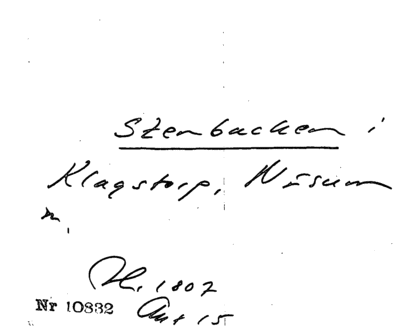 Stenbacken i
Klagstorp, Näsum
n.
H. 1807
Nr 10832 Ant 15